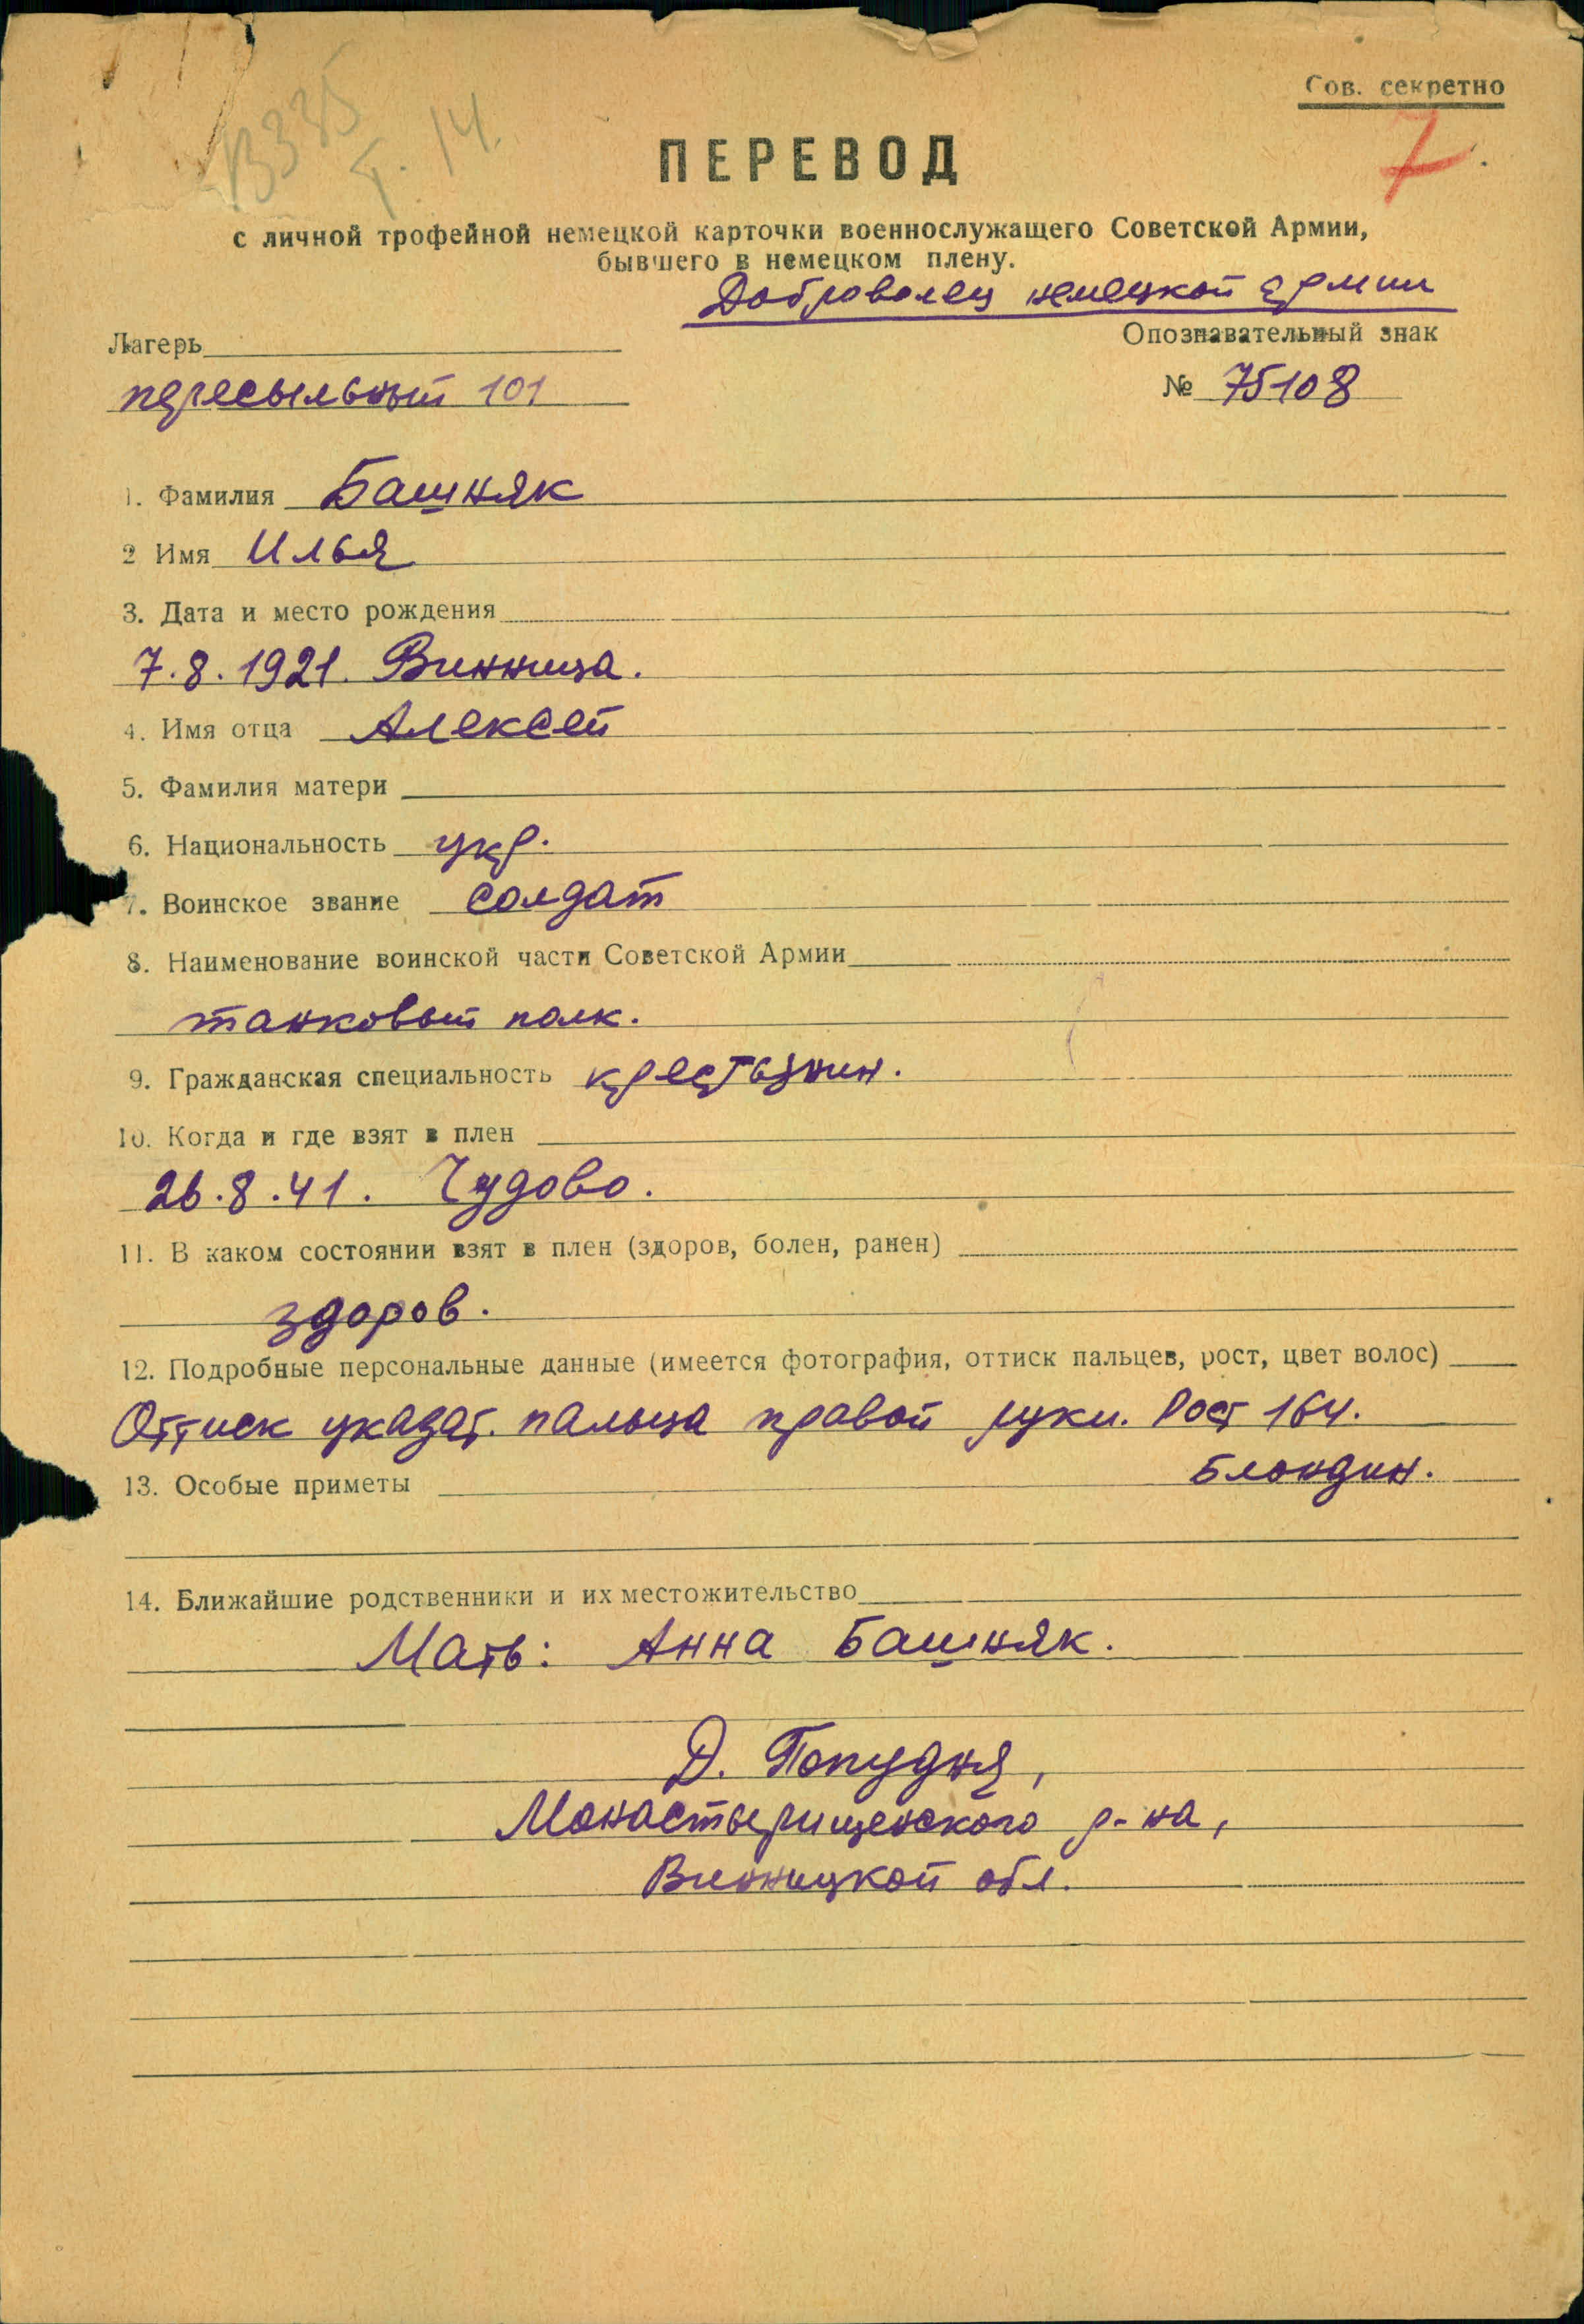 Сов. секретно
В335
т. 14.
7.
ПЕРЕВОД
с личной трофейной немецкой карточки военнослужащего Советской Армии,
бывшего в немецком плену.
Доброволец немецкой армии
Лагерь
Опознавательный знак
пересыльный 101
№ 75108
1. Фамилия Башняк
2 Имя Илья
3. Дата и место рождения
7.8.1921. Винница.
4. Имя отца Алексей
5. Фамилия матери
6. Национальность укр.
7. Воинское звание солдат
8. Наименование воинской части Советской Армии
танковый полк.
9. Гражданская специальность крестьянин.
10. Когда и где взят в плен
26.8.41. Чудово.
11. В каком состоянии взят в плен (здоров, болен, ранен)
здоров.
12. Подробные персональные данные (имеется фотография, оттиск пальцев, рост, цвет волос)
Оттиск указат. пальца правой руки. Рост 164.
блондин.
13. Особые приметы
14. Ближайшие родственники и их местожительство
Мать: Анна Башняк.
Д. Попудня,
Монастырищенского р-на,
Винницкой обл.